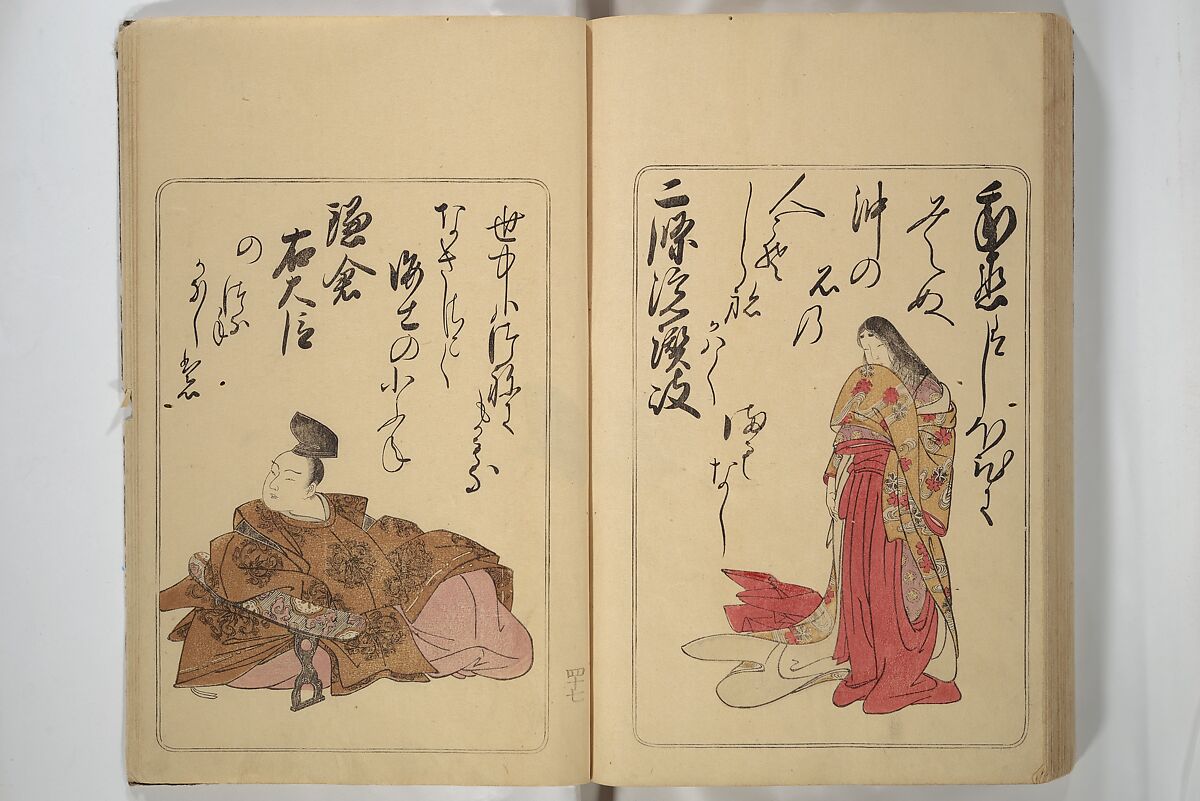 我袖はしほひに
みえぬ
沖の
石の
人こそ
しらね
かはく
まもなし
二條院讃岐
世中ハつねに
もかもな
なきさこく
海士の小ふね
鎌倉
右大臣
の
つなて
かなしも
四十七